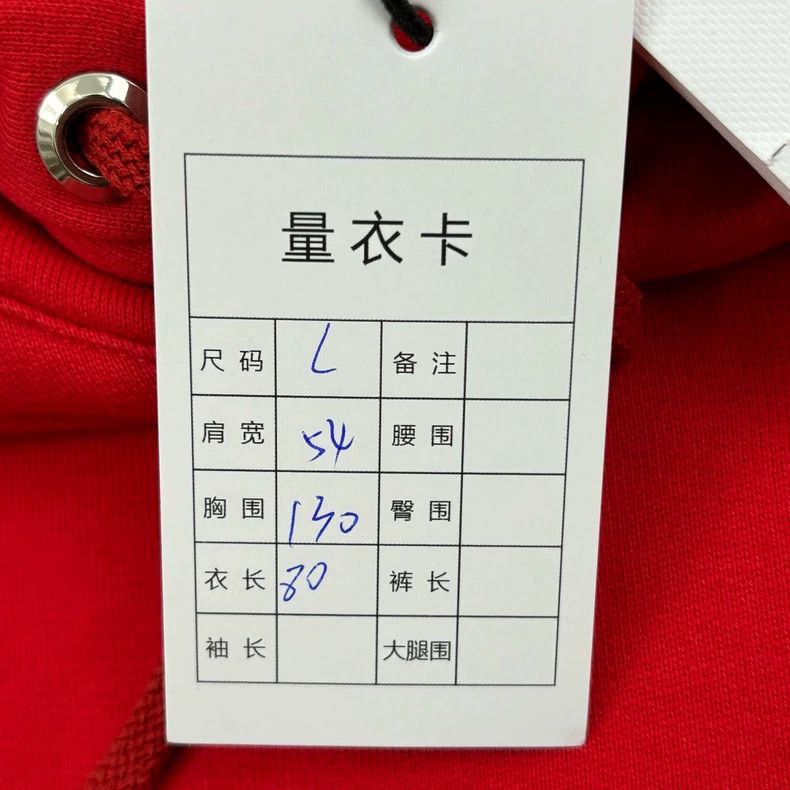 量衣卡
尺码 L 备注
肩宽 54 腰围
胸围 130 臀围
衣长 80 裤长
袖长 大腿围